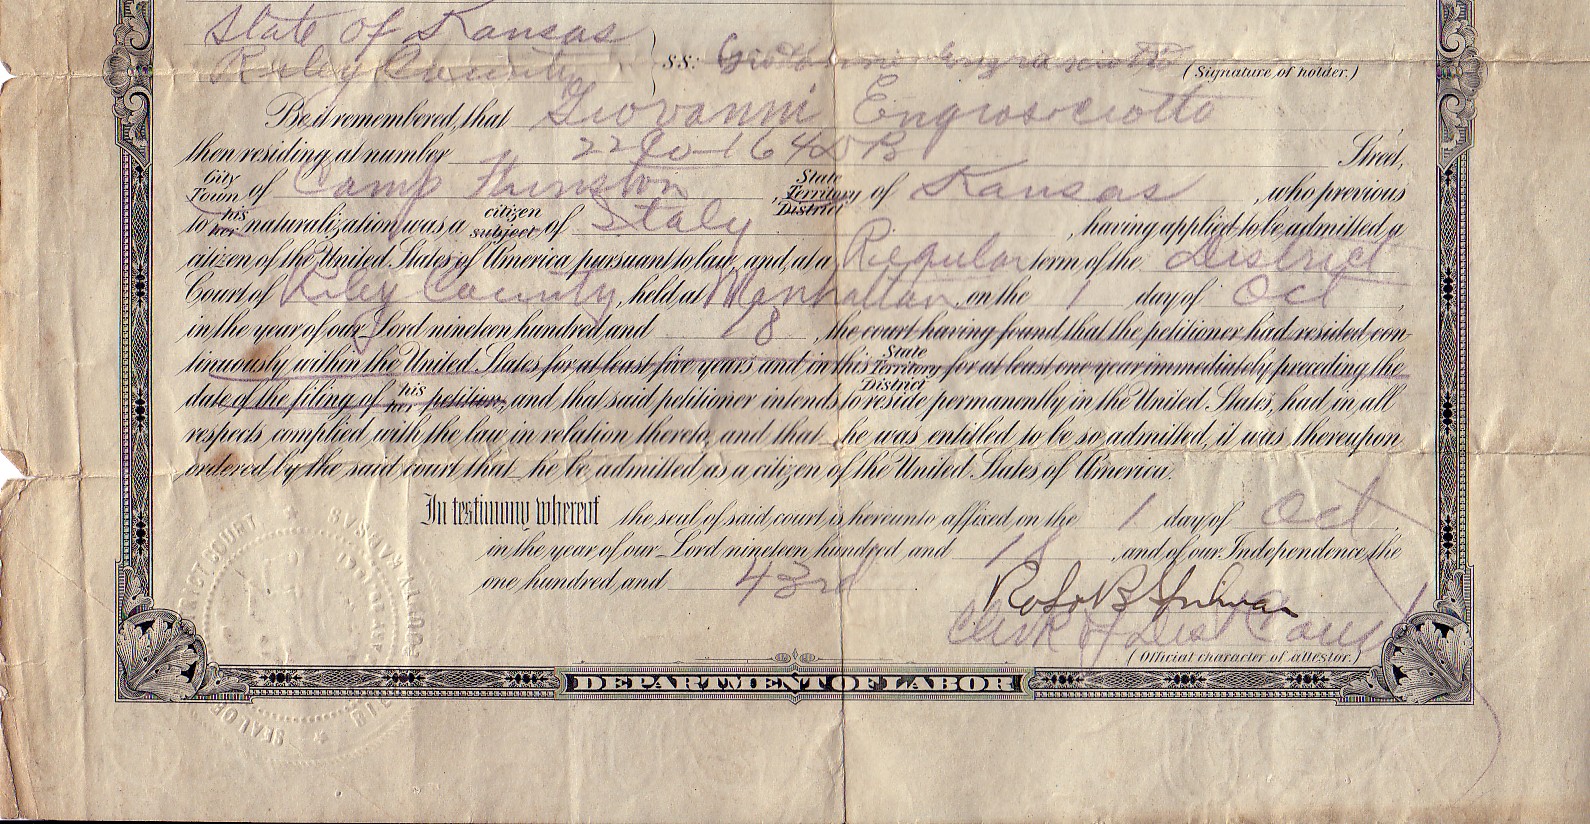 State of Kansas
Riley County } ss: Giovanni Engrasciotto
(Signature of holder.)
Be it remembered, that Giovanni Engrosciotto
then residing at number 22 Co 164 D B Street,
City Town of Camp Funston, State Territory District of Kansas, who previous
to his her naturalization was a citizen subject of Italy, having applied to be admitted a
citizen of the United States of America pursuant to law, and, at a Regular term of the District
Court of Riley County, held at Manhattan on the 1 day of Oct,
in the year of our Lord nineteen hundred and 18, the court having found that the petitioner had resided con-
tinuously within the United States for at least five years and in this State Territory District for at least one year immediately preceding the
date of the filing of his her petition, and that said petitioner intends to reside permanently in the United States, had in all
respects complied with the law in relation thereto, and that he was entitled to be so admitted, it was thereupon
ordered by the said court that he be admitted as a citizen of the United States of America.
In testimony whereof the seal of said court is hereunto affixed on the 1 day of Oct,
in the year of our Lord nineteen hundred and 18, and of our Independence the
one hundred and 43rd
Clerk of Dist Court
(Official character of attestor.)
DEPARTMENT OF LABOR
SEAL OF DISTRICT COURT KANSAS